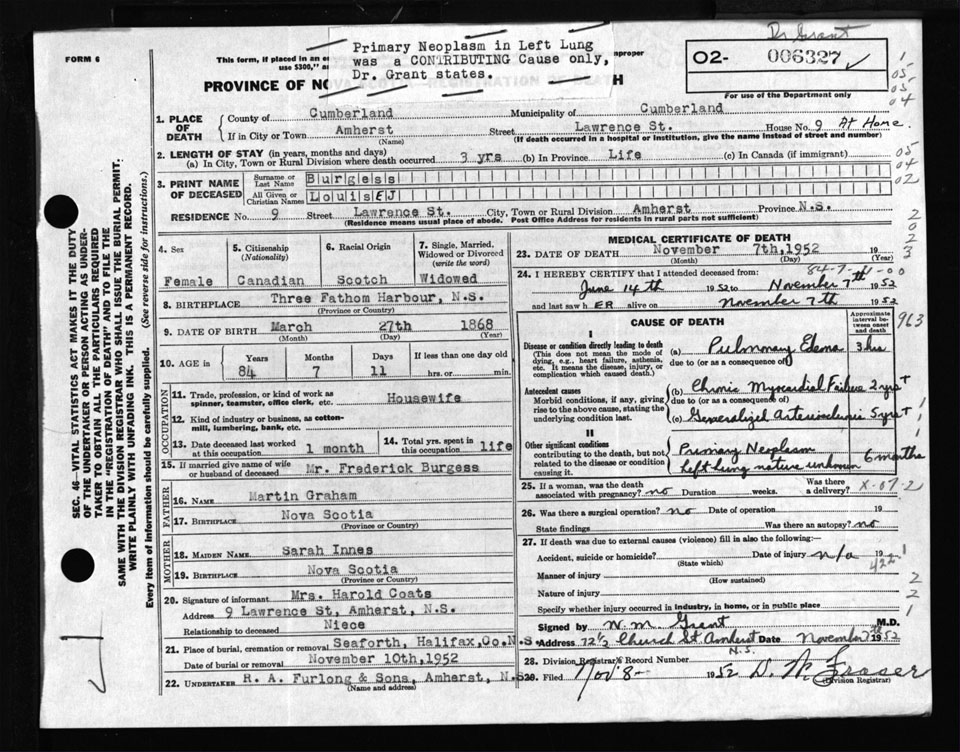 Dr Grant
FORM 6
This form, if placed in an
use $300,"
improper
Primary Neoplasm in Left Lung
was a CONTRIBUTING Cause only,
Dr. Grant states.
02- 006327
For use of the Department only
PROVINCE OF NOVA SCOTIA—REGISTRATION OF DEATH
1. PLACE OF DEATH
County of Cumberland Municipality of Cumberland
If in City or Town Amherst Street Lawrence St. House No. 9 At Home
(Name) (If death occurred in a hospital or institution, give the name instead of street and number)
2. LENGTH OF STAY (in years, months and days)
(a) In City, Town or Rural Division where death occurred 3 yrs (b) In Province Life (c) In Canada (if immigrant)
3. PRINT NAME OF DECEASED
Surname or Last Name Burgess
All Given or Christian Names Louise J
RESIDENCE No. 9 Street Lawrence St. City, Town or Rural Division Amherst Province N.S.
(Residence means usual place of abode. Post Office Address for residents in rural parts not sufficient)
4. Sex Female
5. Citizenship (Nationality) Canadian
6. Racial Origin Scotch
7. Single, Married, Widowed or Divorced (write the word) Widowed
8. BIRTHPLACE Three Fathom Harbour, N.S.
(Province or Country)
9. DATE OF BIRTH March 27th 1868
(Month) (Day) (Year)
10. AGE in Years 84 Months 7 Days 11 If less than one day old hrs. or min.
OCCUPATION
11. Trade, profession, or kind of work as spinner, teamster, office clerk, etc. Housewife
12. Kind of industry or business, as cotton-mill, lumbering, bank, etc.
13. Date deceased last worked at this occupation 1 month
14. Total yrs. spent in this occupation life
15. If married give name of wife or husband of deceased Mr. Frederick Burgess
FATHER
16. NAME Martin Graham
17. BIRTHPLACE Nova Scotia
(Province or Country)
MOTHER
18. MAIDEN NAME Sarah Innes
19. BIRTHPLACE Nova Scotia
(Province or Country)
20. Signature of informant Mrs. Harold Coats
Address 9 Lawrence St, Amherst, N.S.
Relationship to deceased Niece
21. Place of burial, cremation or removal Seaforth, Halifax, Co. N.S.
Date of burial or removal November 10th, 1952
22. UNDERTAKER R. A. Furlong & Sons, Amherst, N.S.
(Name and address)
MEDICAL CERTIFICATE OF DEATH
23. DATE OF DEATH November 7th, 1952 19
(Month) (Day) (Year)
24. I HEREBY CERTIFY that I attended deceased from:
June 14th 1952 to November 7th 1952
and last saw h ER alive on November 7th 1952
CAUSE OF DEATH
Approximate interval between onset and death
I
Disease or condition directly leading to death
(This does not mean the mode of dying, e.g., heart failure, asthenia, etc. It means the disease, injury, or complication which caused death.)
(a) Pulmonary Edema 3 hrs
due to (or as a consequence of)
Antecedent causes
Morbid conditions, if any, giving rise to the above cause, stating the underlying condition last.
(b) Chronic Myocardial Failure 2 yrs +
due to (or as a consequence of)
(c) Generalized Arteriosclerosis 5 yrs +
II
Other significant conditions
contributing to the death, but not related to the disease or condition causing it.
Primary Neoplasm
Left lung nature unknown 6 months
25. If a woman, was the death associated with pregnancy? no Duration weeks. Was there a delivery?
X-07-2
26. Was there a surgical operation? no Date of operation 19
State findings Was there an autopsy? no
27. If death was due to external causes (violence) fill in also the following:—
Accident, suicide or homicide? Date of injury n/a 19
(State which)
422
Manner of injury
(How sustained)
Nature of injury
Specify whether injury occurred in industry, in home, or in public place
Signed by W. M. Grant M.D.
Address 72½ Church St Amherst Date November 7th 1952
N.S.
28. Division Registrar's Record Number
29. Filed Nov 8- 1952
(Division Registrar)
SEC. 46—VITAL STATISTICS ACT MAKES IT THE DUTY
OF THE UNDERTAKER OR PERSON ACTING AS UNDER-
TAKER TO OBTAIN ALL THE PARTICULARS REQUIRED
IN THE "REGISTRATION OF DEATH" AND TO FILE THE
SAME WITH THE DIVISION REGISTRAR WHO SHALL ISSUE THE BURIAL PERMIT.
WRITE PLAINLY WITH UNFADING INK. THIS IS A PERMANENT RECORD.
Every item of information should be carefully supplied. (See reverse side for instructions.)
1
05
05
04
05
04
02
2
0
2
3
963
1
2
2
1